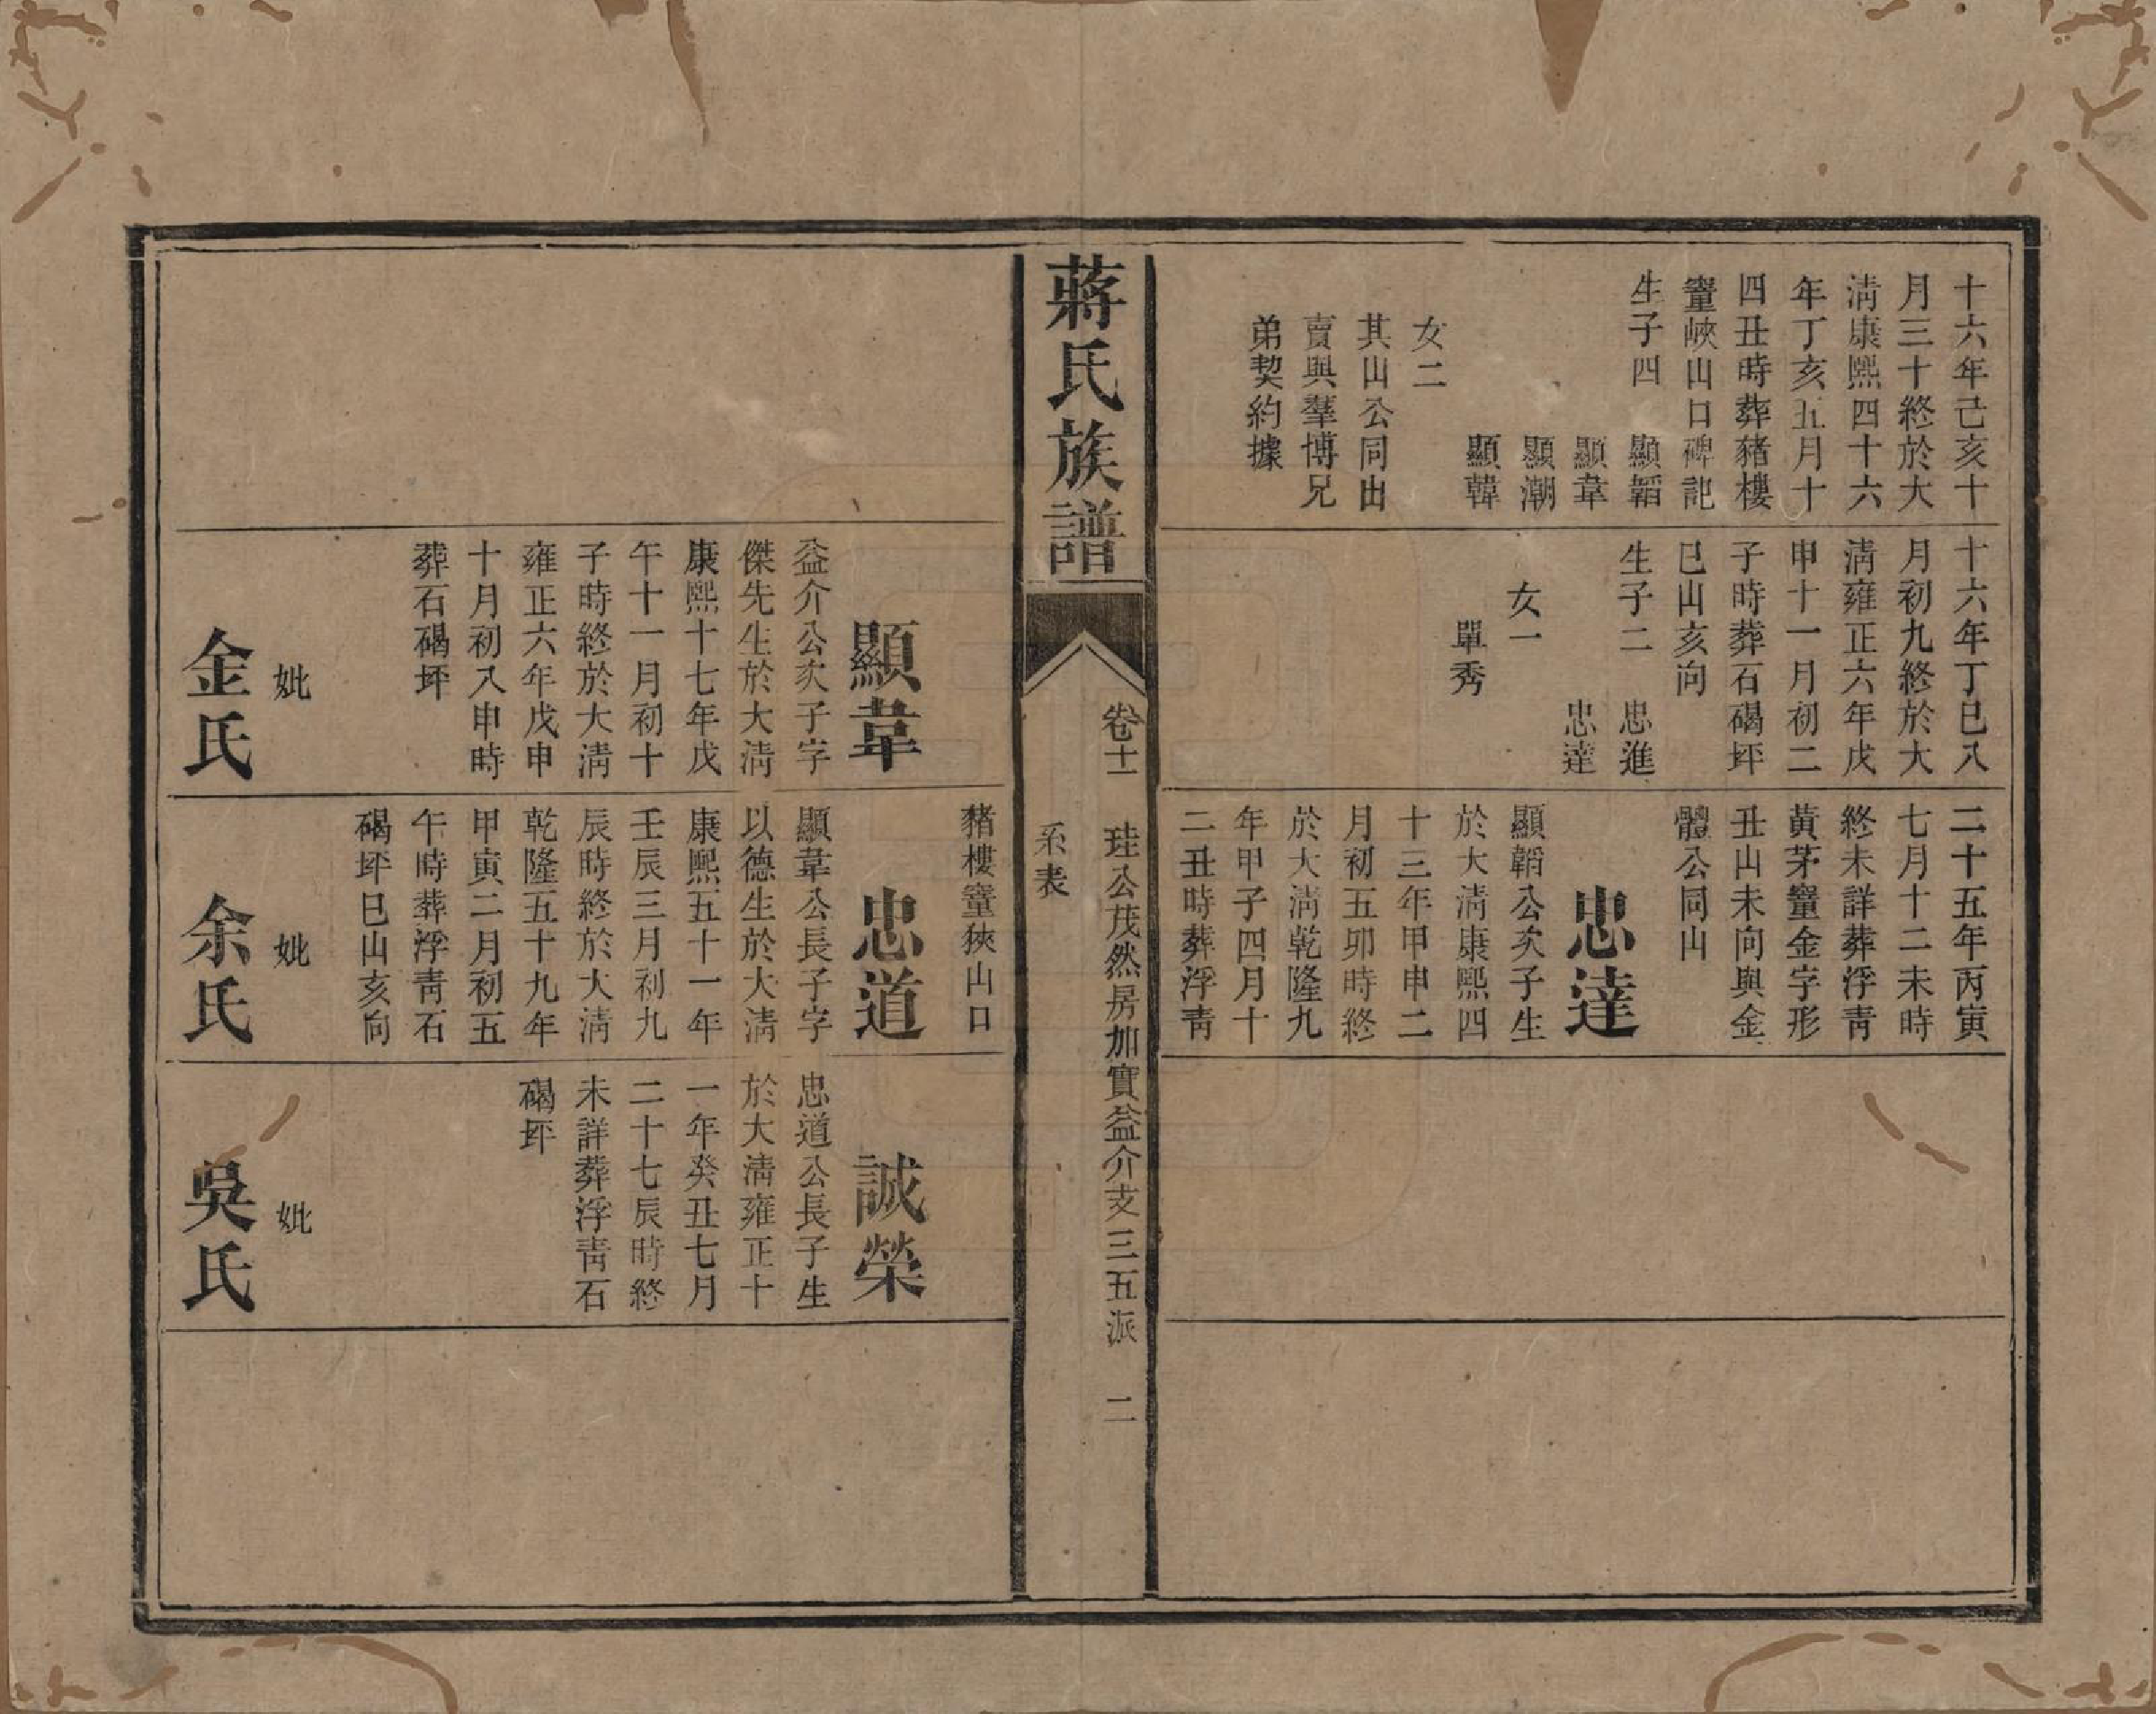 十六年己亥十
月三十終於大
淸康熙四十六
年丁亥五月十
四丑時葬豬樓
窰峽山口碑記
生子四　顯韜
顯韋
顯潮
顯韓
女二
其山公同出
賣與羣博兄
弟契約據
十六年丁巳八
月初九終於大
淸雍正六年戊
申十一月初二
子時葬石碣坪
巳山亥向
生子二　忠進
忠達
女一
單秀
二十五年丙寅
七月十二未時
終未詳葬浮靑
黃茅窰金字形
丑山未向與金
體公同山
忠達
顯韜公次子生
於大淸康熙四
十三年甲申二
月初五卯時終
於大淸乾隆九
年甲子四月十
二丑時葬浮靑
蔣氏族譜
卷十一
珪公茂然房加實益介支三五派　二
系表
顯韋
益介公次子字
傑先生於大淸
康熙十七年戊
午十一月初十
子時終於大淸
雍正六年戊申
十月初八申時
葬石碣坪
妣
金氏
豬樓窰狹山口
忠道
顯韋公長子字
以德生於大淸
康熙五十一年
壬辰三月初九
辰時終於大淸
乾隆五十九年
甲寅二月初五
午時葬浮靑石
碣坪巳山亥向
妣
余氏
誠榮
忠道公長子生
於大淸雍正十
一年癸丑七月
二十七辰時終
未詳葬浮靑石
碣坪
妣
吳氏